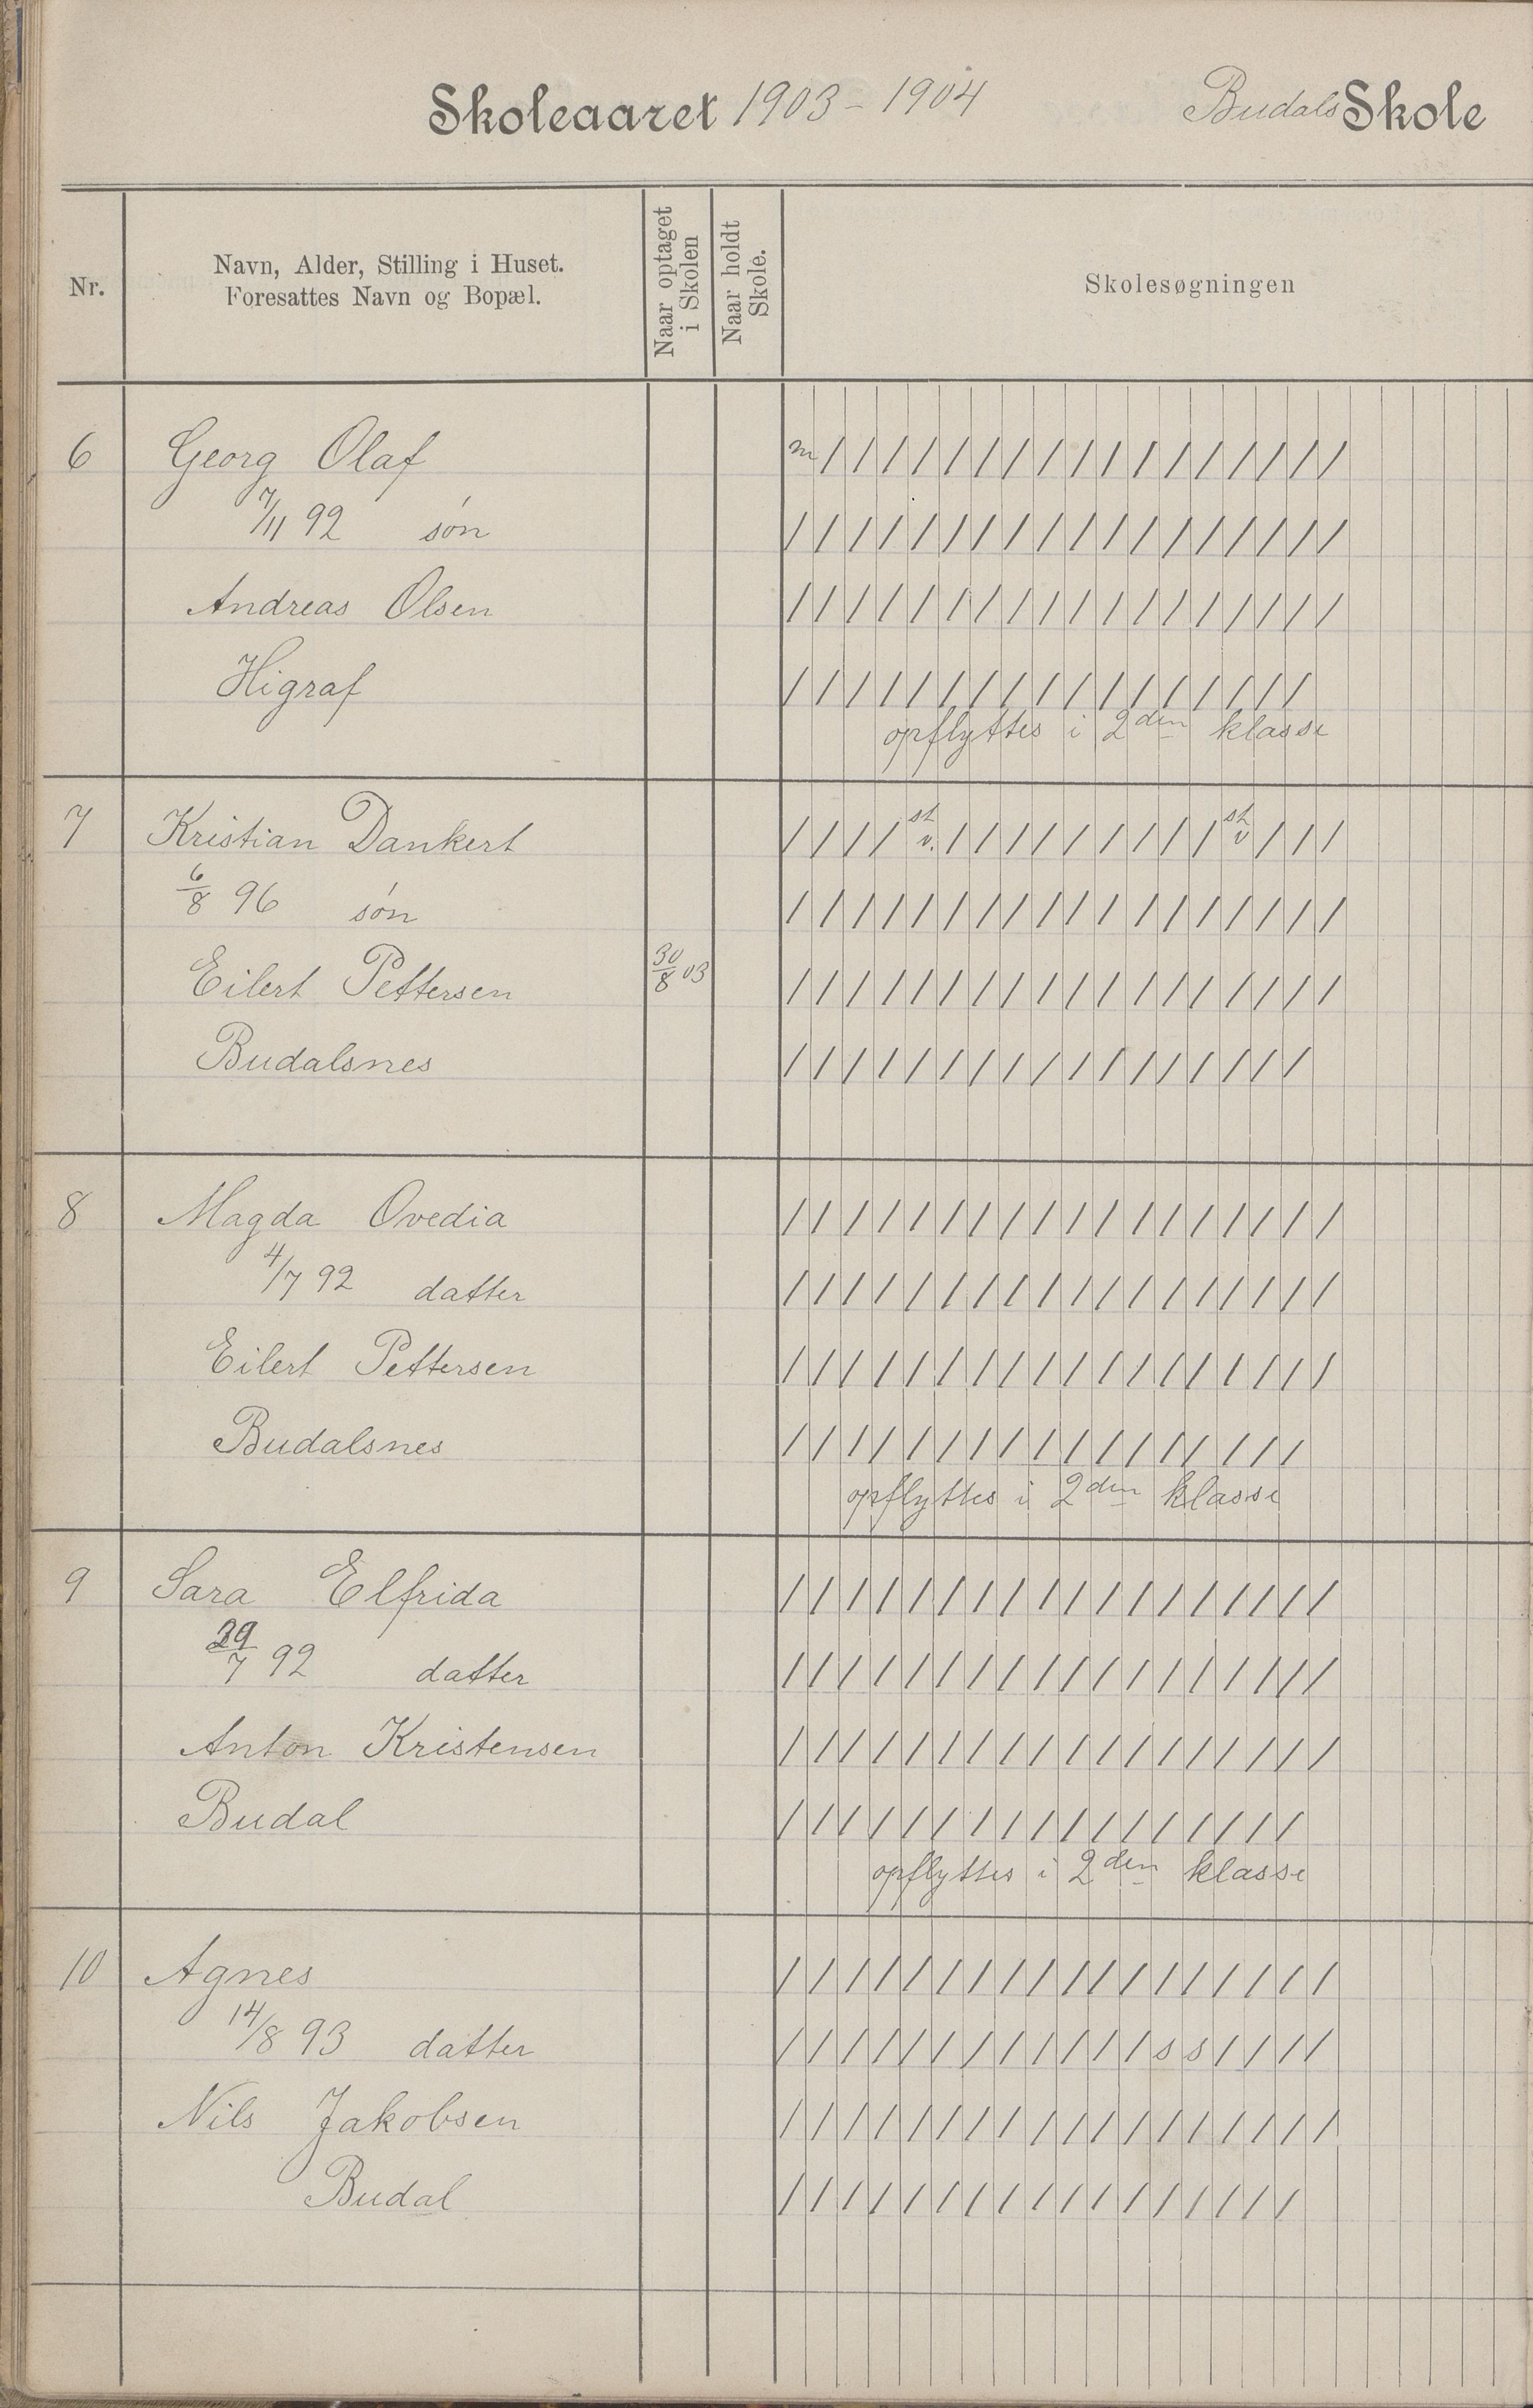 Skoleaaret 1903-1904 Budals Skole
Nr.
Navn, Alder, Stilling i Huset.
Foresattes Navn og Bopæl.
Naar optaget
i Skolen
Naar holdt
Skole.
Skolesøgningen
6 Georg Olaf m / / / / / / / / / / / / / / / / /
7/11 92 søn / / / / / / / / / / / / / / / / / /
Andreas Olsen / / / / / / / / / / / / / / / / / /
Higraf / / / / / / / / / / / / / / / / /
opflyttes i 2den klasse
7 Kristian Dankert / / / / st v. / / / / / / / / / st v / / /
6/8 96 søn / / / / / / / / / / / / / / / / / /
Eilert Pettersen 30/8 03 / / / / / / / / / / / / / / / / / /
Budalsnes / / / / / / / / / / / / / / / / /
8 Magda Ovedia / / / / / / / / / / / / / / / / / /
4/7 92 datter / / / / / / / / / / / / / / / / / /
Eilert Pettersen / / / / / / / / / / / / / / / / / /
Budalsnes / / / / / / / / / / / / / / / / /
opflyttes i 2den klasse
9 Sara Elfrida / / / / / / / / / / / / / / / / / /
29/7 92 datter / / / / / / / / / / / / / / / / / /
Anton Kristensen / / / / / / / / / / / / / / / / / /
Budal / / / / / / / / / / / / / / / / /
opflyttes i 2den klasse
10 Agnes / / / / / / / / / / / / / / / / / /
14/8 93 datter / / / / / / / / / / / / s s / / / /
Nils Jakobsen / / / / / / / / / / / / / / / / / /
Budal / / / / / / / / / / / / / / / / /